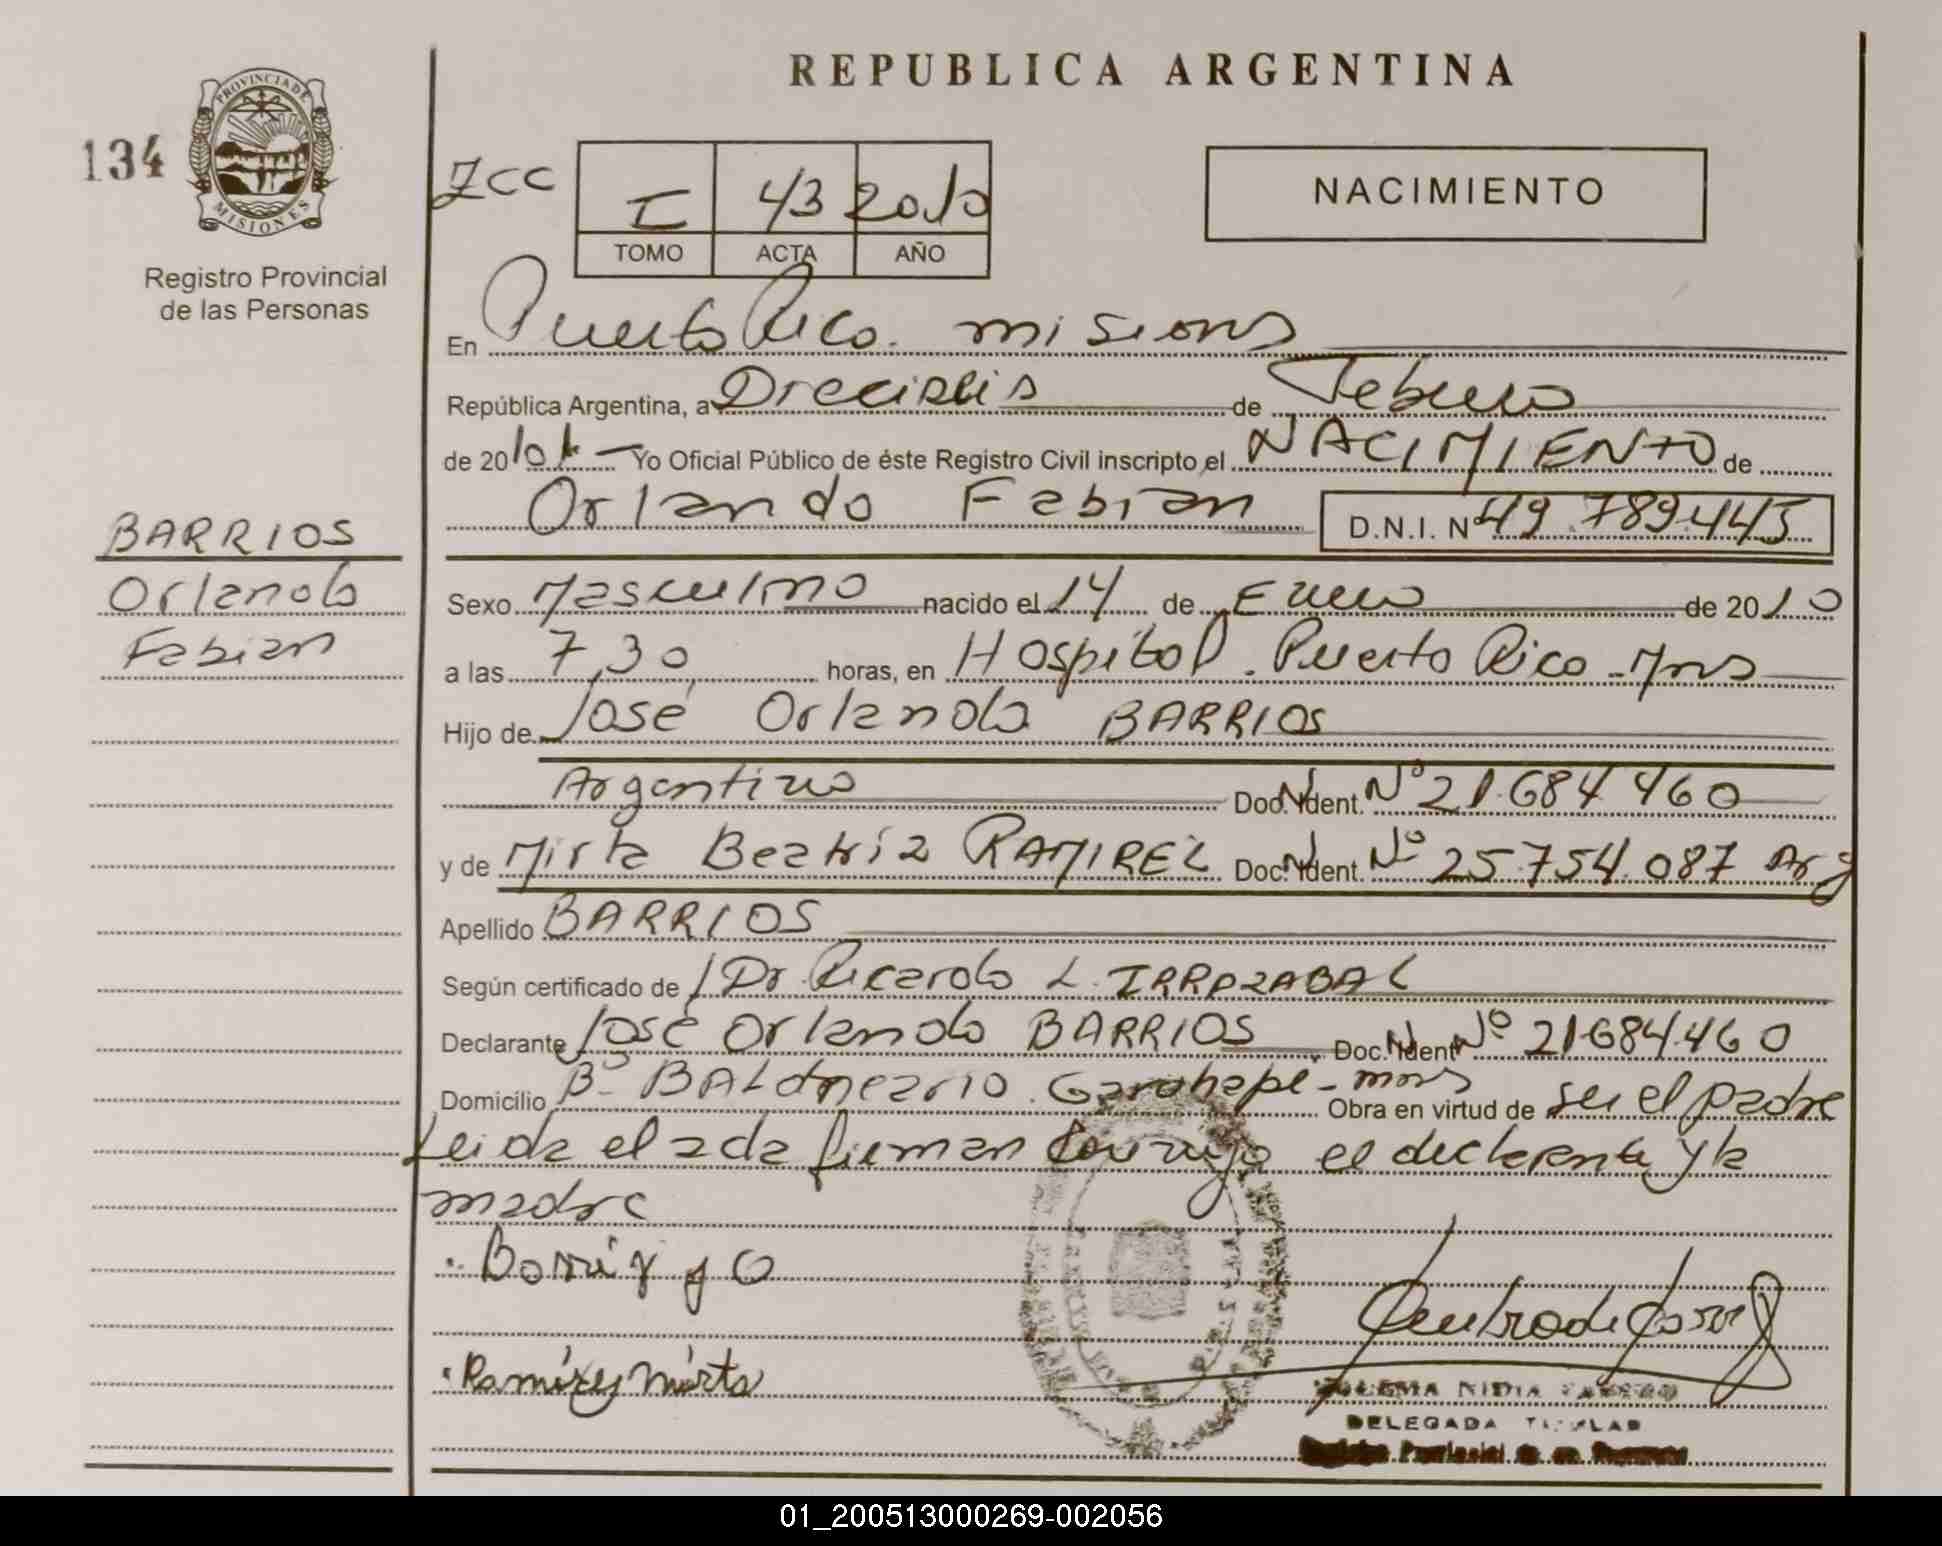 REPUBLICA ARGENTINA
134
PROVINCIA DE
MISIONES
Registro Provincial
de las Personas
ZCC
I 43 2010
TOMO ACTA AÑO
NACIMIENTO
En Puerto Rico. misiones
República Argentina, a Dieciseis de Febrero
de 2010 Yo Oficial Público de éste Registro Civil inscripto el NACIMIENTO de
Orlando Fabian D.N.I. Nº 49.789.443
BARRIOS
Orlando
Fabian
Sexo Masculino nacido el 14 de Enero de 2010
a las 7,30 horas, en Hospital. Puerto Rico - Mns
Hijo de José Orlando BARRIOS
Argentino Doc. Ident. Nº 21.684.460
y de Mirta Beatriz RAMIREZ Doc. Ident. Nº 25.754.087 Arg
Apellido BARRIOS
Según certificado de Dr Ricardo L. IRRAZABAL
Declarante José Orlando BARRIOS Doc. Ident Nº 21.684.460
Domicilio Bº BALdneario. Garuhapé - mns Obra en virtud de ser el padre
Leida el acta firman conmigo el declarante y la
madre
Ramírez Mirta
NIDIA
DELEGADA TITULAR
01_200513000269-002056